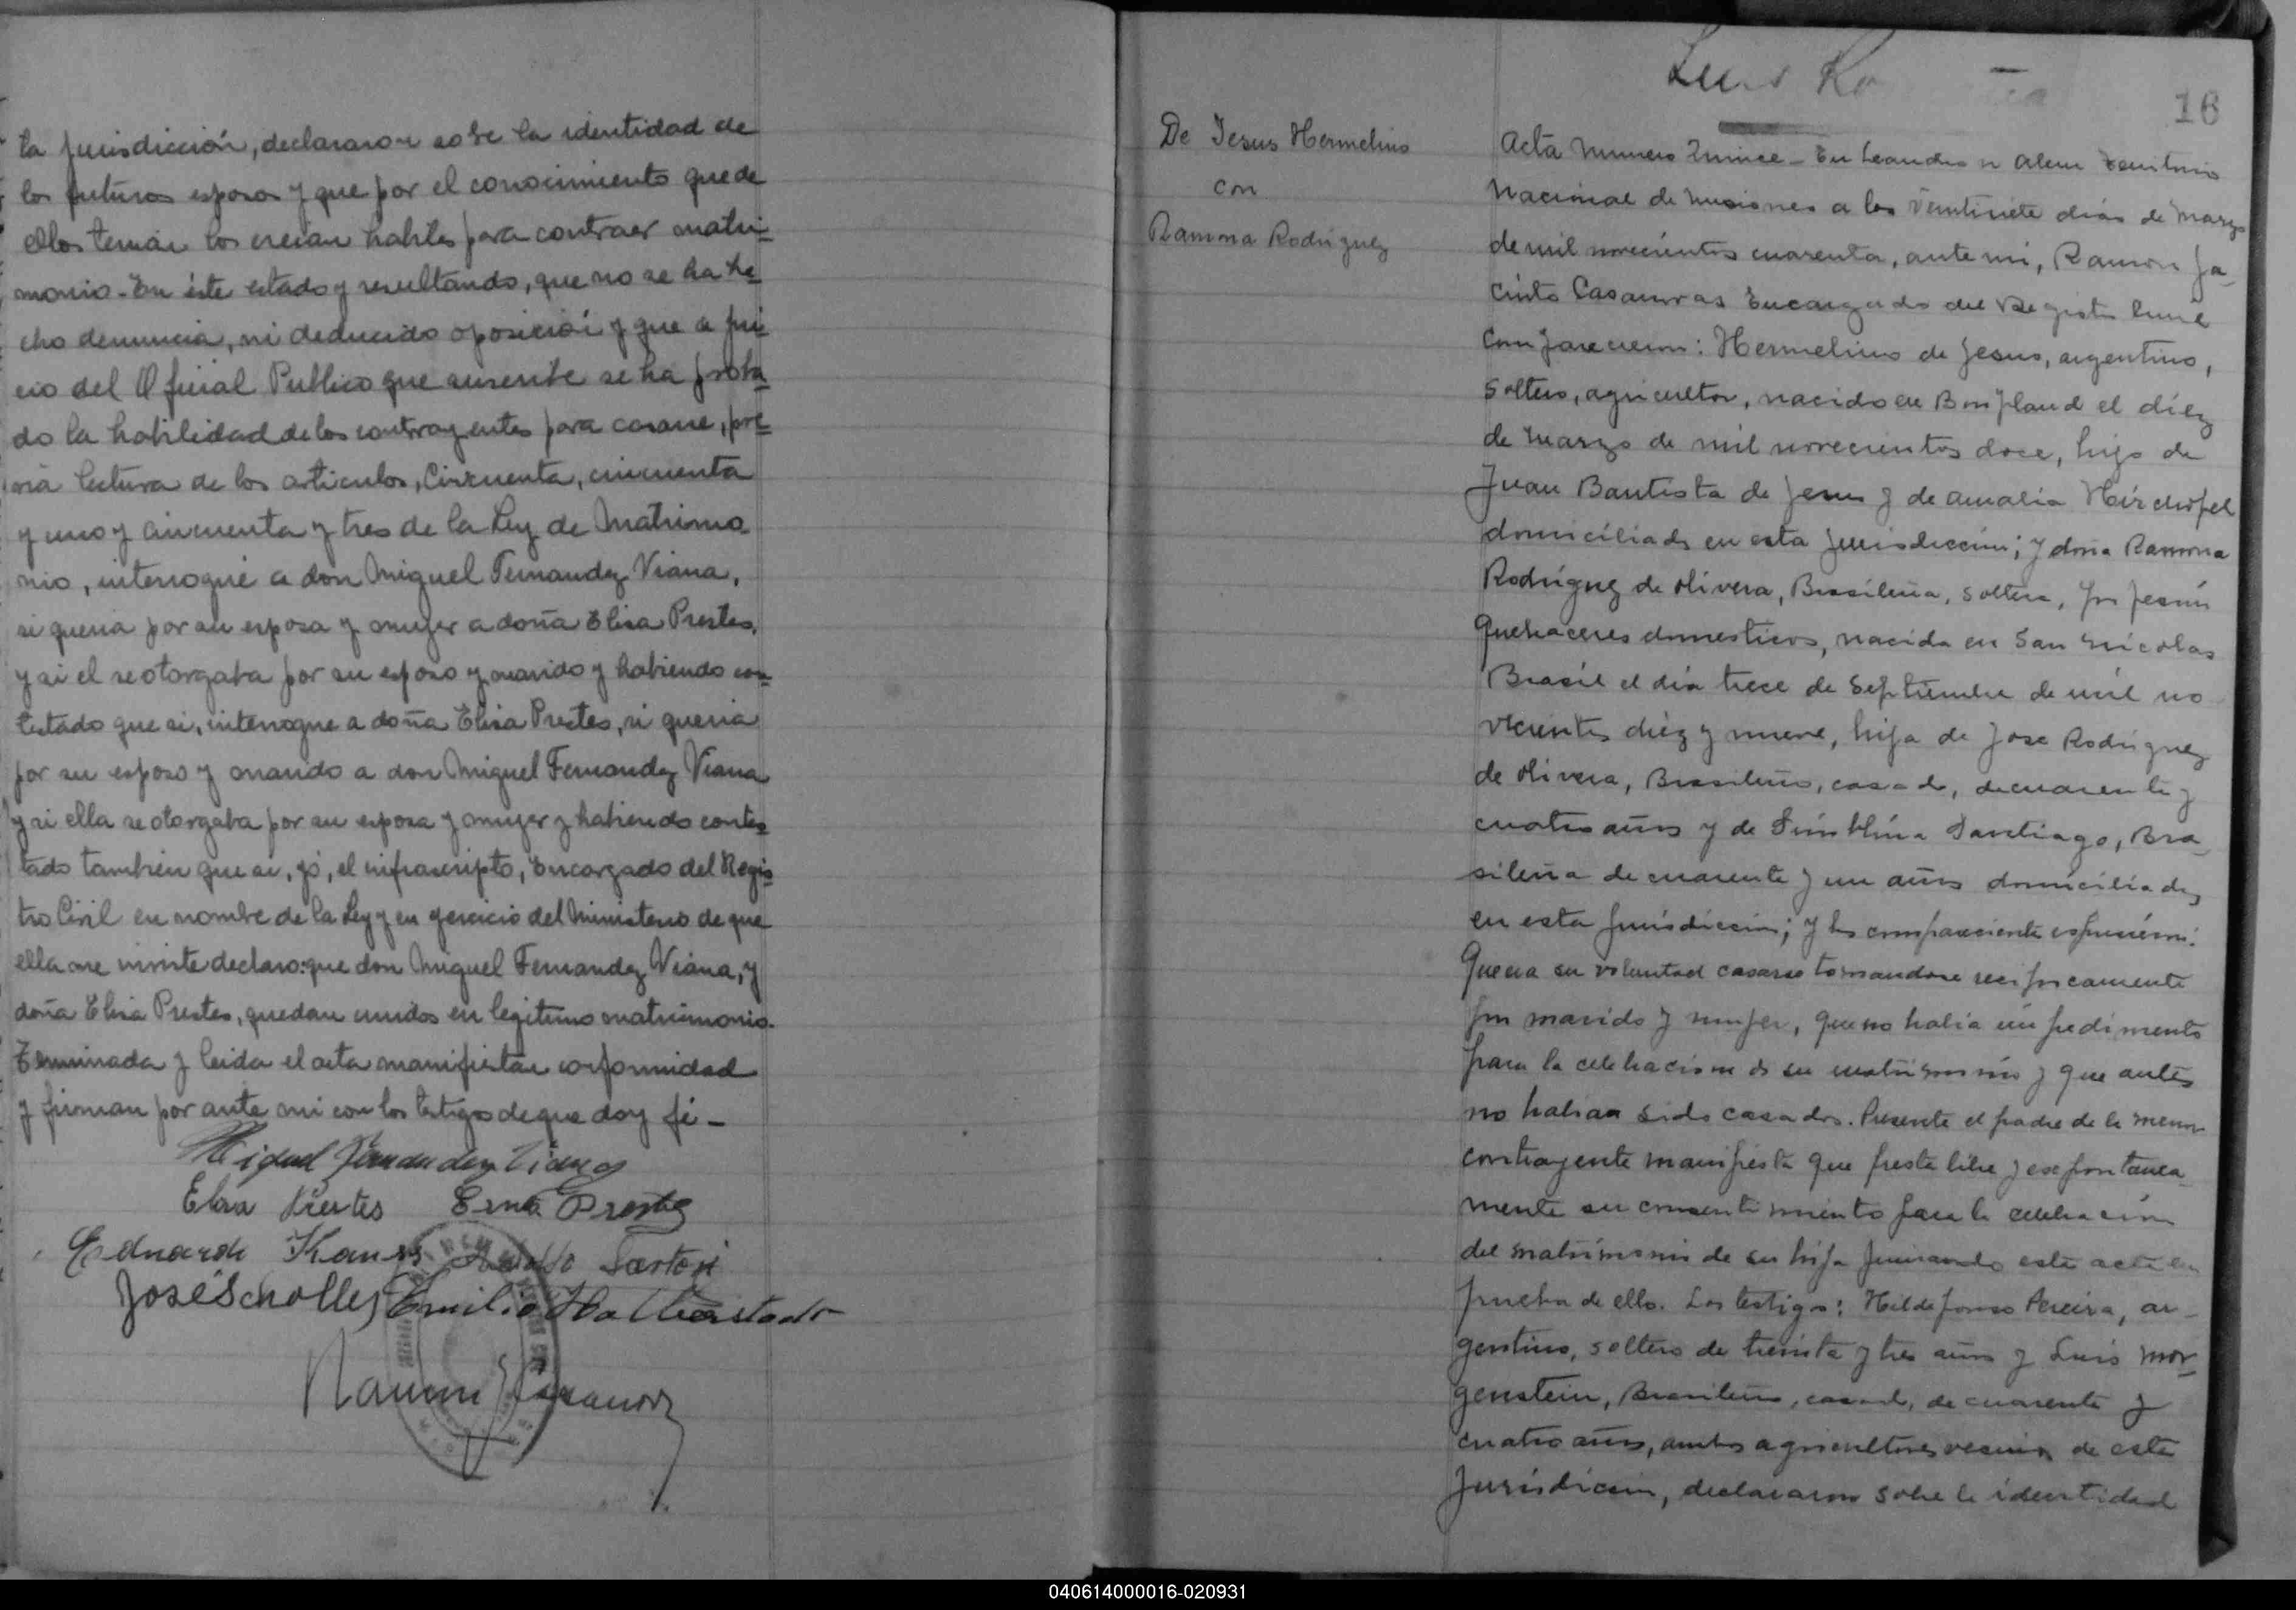 ta jurisdicción, declararon sobre la identidad de
los futuros esposos y que por el conocimiento que de
ellos tenian los creian habiles para contraer matri-
monio. En éste estado y resultando, que no se ha he-
cho denuncia, ni deducido oposición y que a jui-
cio del Oficial Publico que suscribe se ha proba-
do la habilidad de los contrayentes para casarse, pre-
via lectura de los articulos, Cincuenta, cincuenta
y uno y cincuenta y tres de la Ley de Matrimo-
nio, interrogué a don Miguel Fernandez Viana,
si queria por su esposa y mujer a doña Elisa Prestes,
y si el se otorgaba por su esposo y marido y habiendo con-
testado que si, interrogue a doña Elisa Prestes, si queria
por su esposo y marido a don Miguel Fernandez Viana
y si ella se otorgaba por su esposa y mujer y habiendo contes-
tado también que si, yó, el infrascripto, Encargado del Regis-
tro Civil en nombre de la Ley y en gercicio del Ministerio de que
ella me inviste declaro: que don Miguel Fernandez Viana, y
doña Elisa Prestes, quedan unidos en legitimo matrimonio.
Terminada y leida el acta manifiestan conformidad
y firman por ante mi con los testigos de que doy fé -
Miguel Fernandez Viana
Elisa Prestes Prestes
Eduardo Kauss Sartori
José Scholles Emilio Halberstadt
Ramon J Casanovas
Luis
16
De Jesus Hermelino
con
Ramona Rodriguez
Acta Numero Quince - En Leandro n Alem Territorio
Nacional de Misiones a los veintisiete dias de marzo
de mil novecientos cuarenta, ante mi, Ramon Ja-
cinto Casanovas Encargado del Registro Civil
Comparecieron: Hermelino de Jesus, argentino,
soltero, agricultor, nacido en Bonpland el diez
de Marzo de mil novecientos doce, hijo de
Juan Bautista de Jesus y de Amalia Hirchofel
domiciliados en esta jurisdiccion; y doña Ramona
Rodriguez de Olivera, Brasileña, soltera, profesion
Quehaceres domesticos, nacida en San Nicolas
Brasil el dia trece de Septiembre de mil no
vecientos diez y nueve, hija de Jose Rodriguez
de Olivera, Brasileño, casado, de cuarenta y
cuatro años y de Santiago, Bra-
sileña de cuarenta y un años domiciliados
en esta jurisdiccion; y los comparecientes espusieron:
Que era su voluntad casarse tomandose reciprocamente
por marido y mujer, que no habia impedimento
para la celebracion de su matrimonio y que antes
no habian sido casados. Presente el padre de la menor
contrayente manifiesta que presta libre y espontanea-
mente su consentimiento para la celebracion
del matrimonio de su hija firmando esta acta en
prueba de ello. Los testigos: Hildefonso Pereira, ar-
gentino, soltero de treinta y tres años y Luis Mor-
genstein, Brasileño, casado, de cuarenta y
cuatro años, ambos agricultores vecinos de esta
Jurisdiccion, declararon sobre la identidad
040614000016-020931